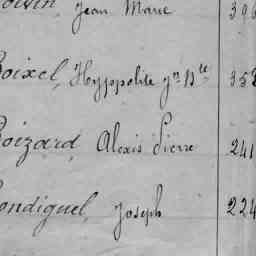 Jean Marie 396
Boixel, Hyppolite Jn Bte 358
Boizard, Alexis Pierre 241
Bondiguel, Joseph 224